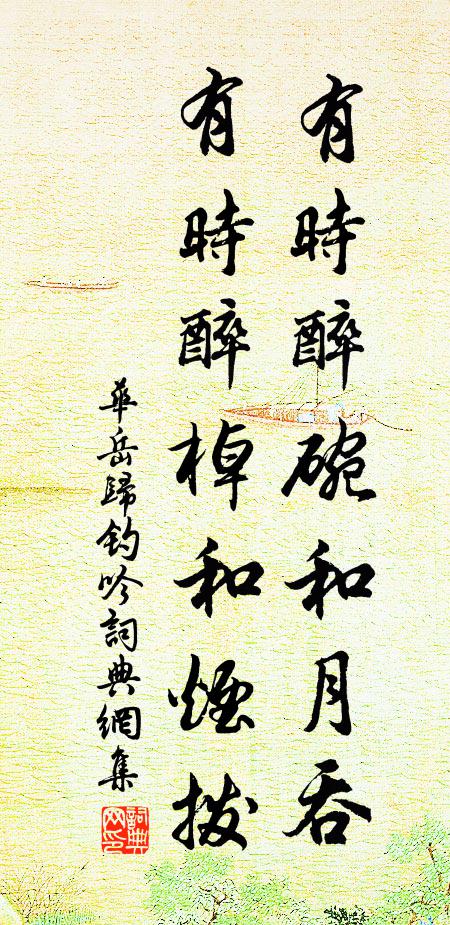 有時醉碗和月吞
有時醉棹和煙撥
華岳歸釣吟詞典網集
詞典網印